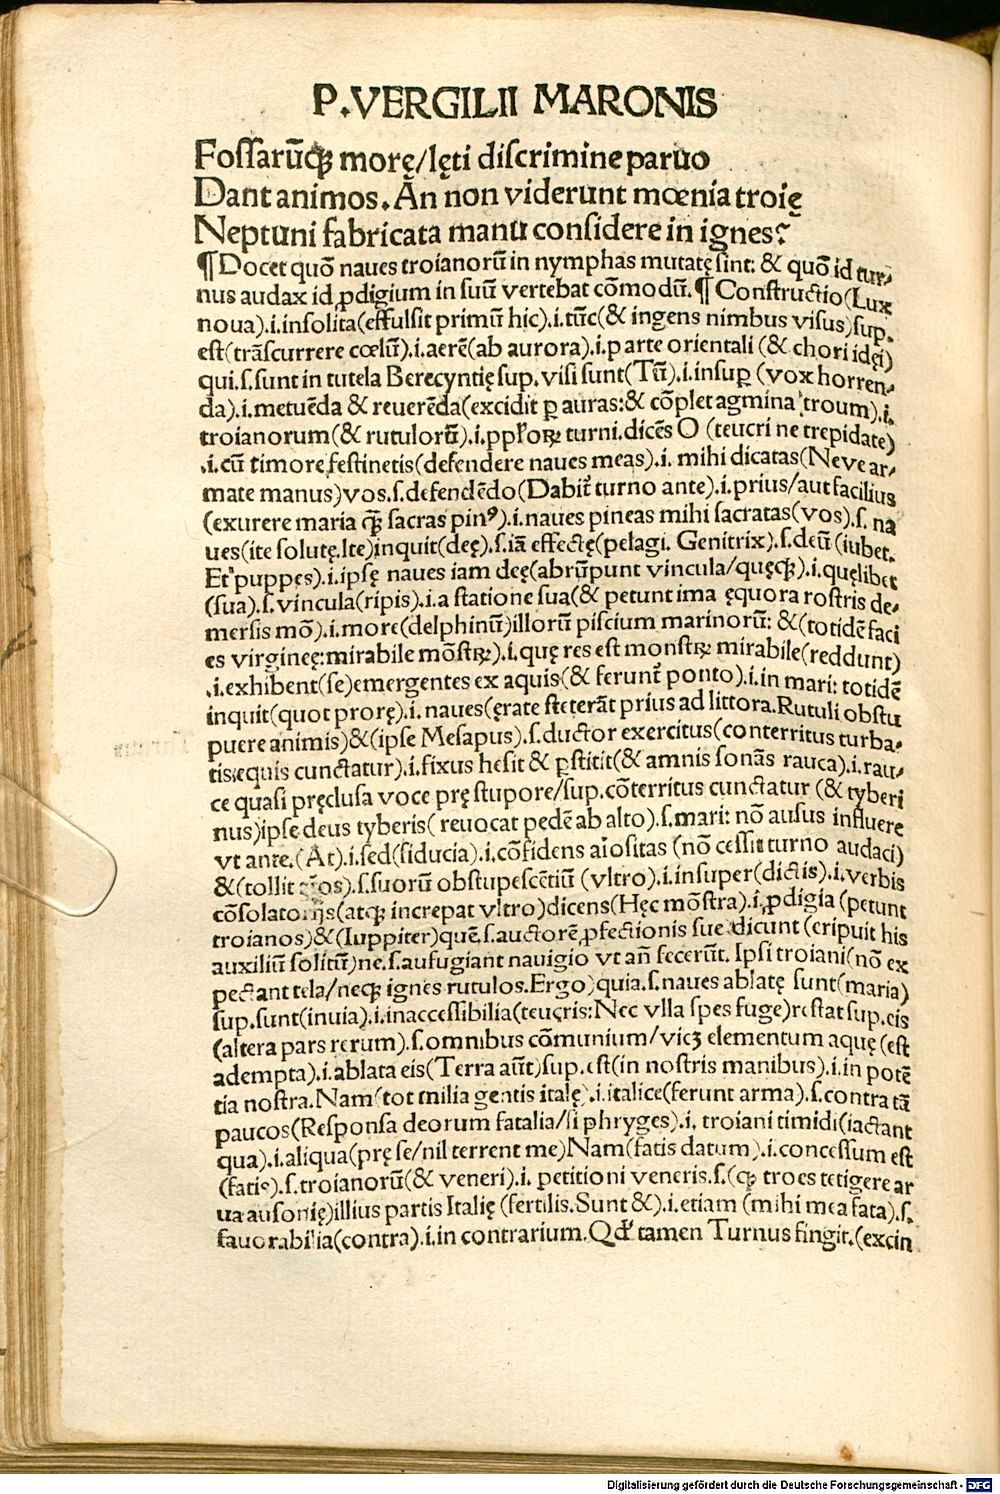 P.VERGILII MARONIS
Fossarūqꝫ morę/lęti discrimine paruo
Dant animos. An non viderunt mœnia troię
Neptuni fabricata manu considere in ignes?
¶ Docet quō naues troianorū in nymphas mutatę sint: & quō id tur-
nus audax id ꝓdigium in suū vertebat cōmodū. ¶ Constructio(Lux
noua).i.insolita(effulsit primū hic).i.tūc(& ingens nimbus visus)sup.
est(trāscurrere cœlū).i.aerē(ab aurora).i.parte orientali (& chori idęi)
qui.s.sunt in tutela Berecyntię sup. visi sunt(Tū).i.insuꝑ (vox horren-
da).i.metuēda & reuerēda(excidit ꝑ auras:& cōplet agmina troum).i.
troianorum(& rutulorū).i.ppl'oꝝ turni.dicēs O (teucri ne trepidate)
.i.cū timore festinetis(defendere naues meas).i. mihi dicatas(Neve ar-
mate manus)vos.s.defendēdo(Dabit᷑ turno ante).i.prius/aut facilius
(exurere maria q̄ꝫ sacras pinꝰ).i.naues pineas mihi sacratas(vos).s. na
ues(ite solutę.Ite)inquit(deę).s.iā effectę(pelagi. Genitrix).s.deū (iubet.
Et puppes).i.ipsę naues iam deę(abrūpunt vincula/quęqꝫ).i.quęlibet
(sua).s.vincula(ripis).i.a statione sua(& petunt ima ęquora rostris de-
mersis mō).i.more(delphinū)illorū piscium marinorū: &(totidē faci
es virgineę:mirabile mōstꝝ).i.quę res est monstꝝ mirabile(reddunt)
.i.exhibent(se)emergentes ex aquis(& ferunt᷑ ponto).i.in mari: totidē
inquit(quot prorę).i. naues(ęrate steterāt prius ad littora.Rutuli obstu
puere animis)&(ipse Mesapus).s.ductor exercitus(conterritus turba-
tis:equis cunctatur).i.fixus hesit & ꝑstitit(& amnis sonās rauca).i.rau-
ce quasi pręclusa voce prę stupore/sup.cōterritus cunctatur (& tyberi
nus)ipse deus tyberis( reuocat pedē ab alto).s.mari: nō ausus influere
vt ante.(At).i.sed(fiducia).i.cōfidens aīositas (nō cessit turno audaci)
&(tollit aīos).s.suorū obstupescētiū (vltro).i.insuper(dictis).i.verbis
cōsolatorijs(atqꝫ increpat vltro)dicens(Hęc mōstra).i.ꝓdigia (petunt
troianos)&(Iuppiter)quē.s.auctorē ꝓfectionis sue dicunt (eripuit his
auxiliū solitū)ne.s.aufugiant nauigio vt an̄ fecerūt. Ipsi troiani(nō ex
pectant tela/neqꝫ ignes rutulos.Ergo)quia.s.naues ablatę sunt(maria)
sup.sunt(inuia).i.inaccessibilia(teucris:Nec vlla spes fuge)restat sup.eis
(altera pars rerum).s.omnibus cōmunium/vicꝫ elementum aquę (est
adempta).i.ablata eis(Terra aūt)sup.est(in nostris manibus).i.in potē
tia nostra.Nam(tot milia gentis italę).i.italice(ferunt arma).s.contra tā
paucos(Responsa deorum fatalia/si phryges).i. troiani timidi(iactant
qua).i.aliqua(prę se/nil terrent me)Nam(fatis datum).i.concessum est
(fatis).s.troianorū(& veneri).i. petitioni veneris.s.(qꝫ troes tetigere ar
ua ausonię)illius partis Italię (fertilis.Sunt &).i.etiam (mihi mea fata).s.
fauorabilia(contra).i.in contrarium.Qd' tamen Turnus fingit.(excin
Digitalisierung gefördert durch die Deutsche Forschungsgemeinschaft - DFG